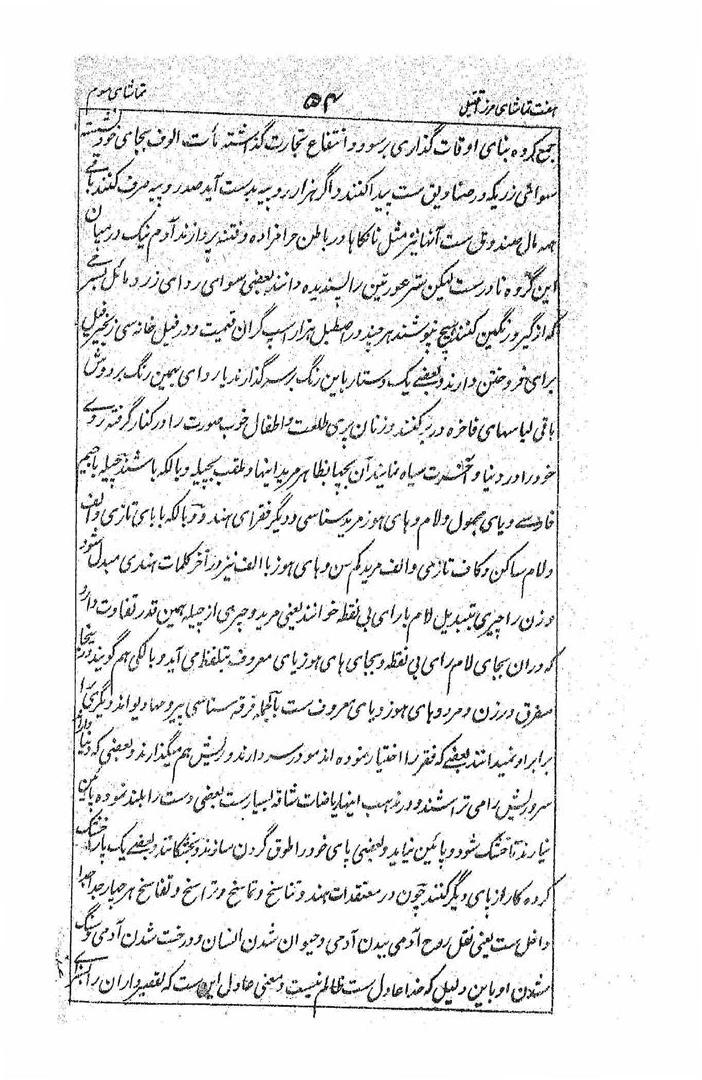 هفت تماشای مرزا قتیل ۵۴ تماشای سوم
جمع کرده بنای اوقات گذاری بر سود و انتفاع تجارت گذاشته مآت الوف بجای خود نشسته
سوای زریکه در صنادیق ست پیدا کنند و اگر هزار روپیه بدست آید صد روپیه صرف کنند باقی
همه مال صندوقی ست آنها نیز مثل نانکها در باطن حرامزاده و فتنه پردازند آدم نیک در میان
این گروه نادرست لیکن ستر عورتین را پسندیده دانند بعضی سوای ردای زرد مائل بسرخی
که از گیرو رنگین کنند هیچ نپوشند هر چند در اصطبل هزار اسپ گران قیمت و در فیل خانه سی زنجیر فیل
برای فروختن دارند و بعضے یک دستار باین رنگ بر سر گذارند یا ردای بهمین رنگ بر دوش
باقی لباسهای فاخره در بر کنند و زنان پری طلعت و اطفال خوب صورت را در کنار گرفته روے
خود را در دنیا و آخرت سیاه نمایند آن بچها بظاهر مرید اینها و ملقب بچیله و بالکه باشند چیله با جیم
فارسے و یای مجهول و لام و های هوز مرید سناسی و دیگر فقرای هند و بالکه با بای تازی و الف
و لام ساکن و کاف تازی و الف مرید کم سن و های هوز با الف نیز در آخر کلمات هندی مبدل شود
و زن را چیری بتبدیل لام با رای بی نقطه خوانند یعنی مرید و چیری از چیله همین قدر تفاوت دارد
که در ان بجای لام رای بی نقطه و بجای های هوز یای معروف بتلفظ می آید و بالکی هم گویند در ینجا
مفرق در زن و مرد و های هوز و یای معروف ست بالجمله فرقه سناسی پیر و مهادیو اند و دیگری را
برابر او نمیدانند بعضے که فقر را اختیار نموده اند مو در سر دارند و ریش هم میگذارند و بعضی که دنیا دارند
سر و ریش را می تراشند و در مذهب اینها ریاضات شاقه بسیار ست بعضی دست را بلند نموده پایین
نیارند تا خشک شود و پائین نیاید و بعضی پای خود را طوق گردن سازند و بخشکانند و بعضے یک پا را خشک
کرده کار از پای دیگر کنند چون در معتقدات هند و تناسخ و تماسخ و تراسخ و تفاسخ هر چهار جدا جدا
داخل ست یعنی نقل روح آدمی ببدن آدمی و حیوان شدن انسان و درخت شدن آدمی و سنگ
شدن او باین دلیل که خدا عادل ست ظالم نیست و معنی عادل این ست که تقصیرداران را بسزای